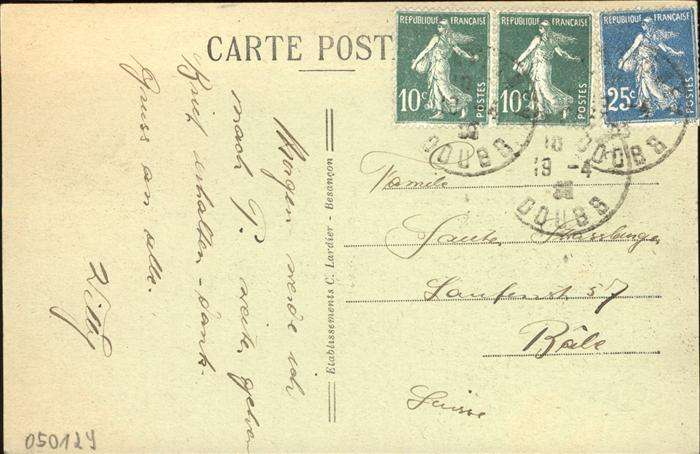 CARTE POST
RÉPUBLIQUE FRANÇAISE
10c POSTES
RÉPUBLIQUE FRANÇAISE
10c POSTES
RÉPUBLIQUE FRANÇAISE
25c POSTES
DOUBS
DOUBS
19 -4
DOUBS
Morgen werde ich
nach P. weiter gehen
Brief erhalten - dank.
Gruss an alle.
Willy
Etablissements C. Lardier - Besançon
Famille
Sauter
Laufenstr 57
Bâle
Suisse
050124